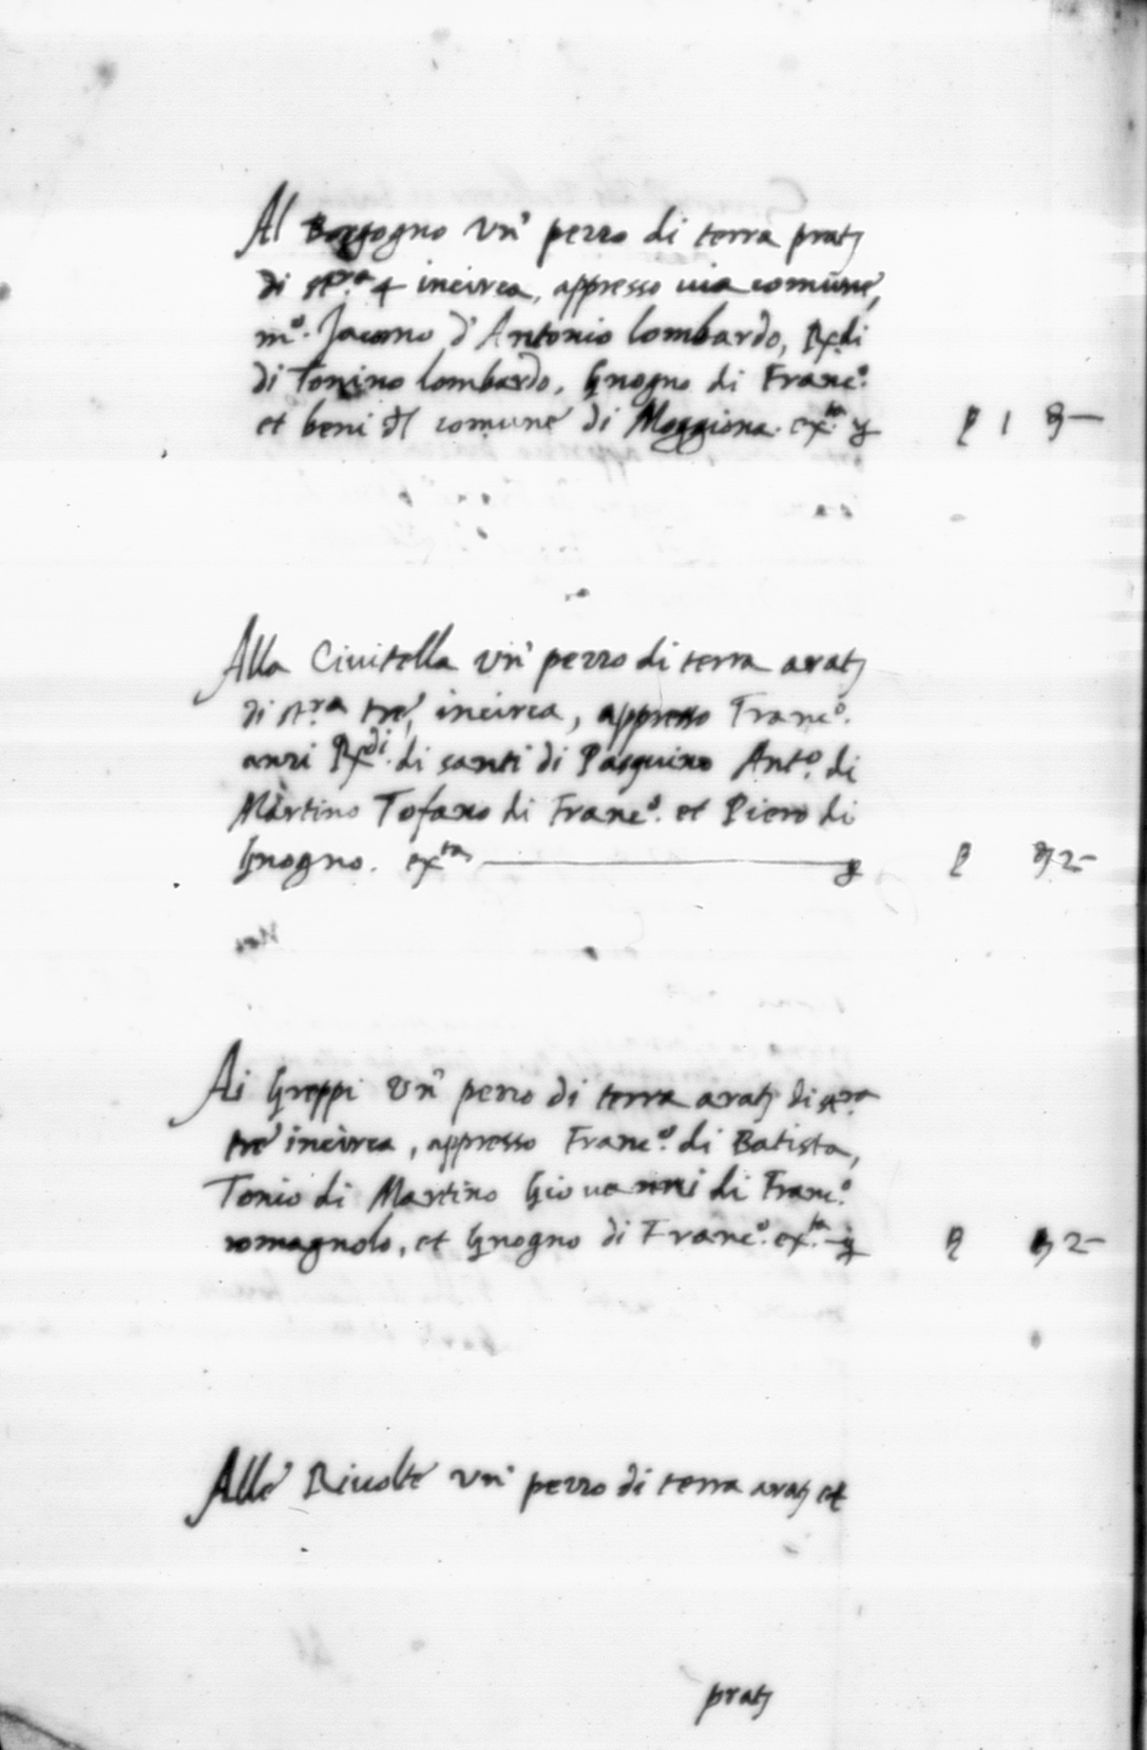 Al Borgogno un' pezzo di terra prat.
di st.ra 4 incirca, appresso via comune,
m.o Jacomo d'Antonio lombardo, Rx.di
di Tonino lombardo, Gnogno di Franc.o
et beni del comune di Moggiona. ex.ta
1
Alla Civitella un' pezzo di terra arat.
di st.ra tre, incirca, appresso Franc.o
anzi Rx.di di santi di Pasquino Ant.o di
Martino Tofano di Franc.o et Piero di
Gnogno. ex.ta
2-
Ai Greppi un' pezzo di terra arat. di st.ra
tre incirca, appresso Franc.o di Batista,
Tonio di Martino Giovanni di Franc.o
romagnolo, et Gnogno di Franc.o ex.ta
2-
Alle Rivolte un' pezzo di terra arat. et
prat.